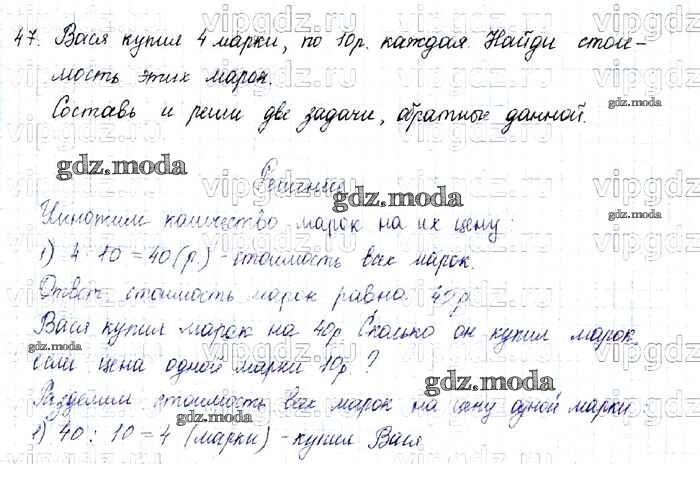 47. Вася купил 4 марки, по 10р. каждая. Найди стои-
мость этих марок.
Составь и реши две задачи, обратные данной.
gdz.moda
gdz.moda
Решение
gdz.moda
gdz.moda
Умножим количество марок на их цену
1) 4 · 10 = 40 (р.) - стоимость всех марок.
Ответ: стоимость марок равна 40р
Вася купил марок на 40р Сколько он купил марок,
если цена одной марки 10р?
gdz.moda
Разделим стоимость всех марок на цену одной марки
gdz.moda
1) 40 : 10 = 4 (марки) - купил Вася
vipgdz.ru